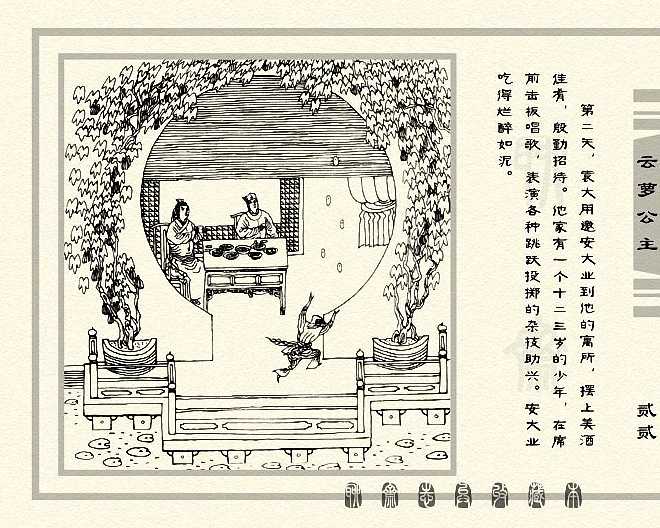 云萝公主
第二天，袁大用邀安大业到他的寓所，摆上美酒
佳肴，殷勤招待。他家有一个十二三岁的少年，在席
前击板唱歌，表演各种跳跃投掷的杂技助兴。安大业
吃得烂醉如泥。
贰贰